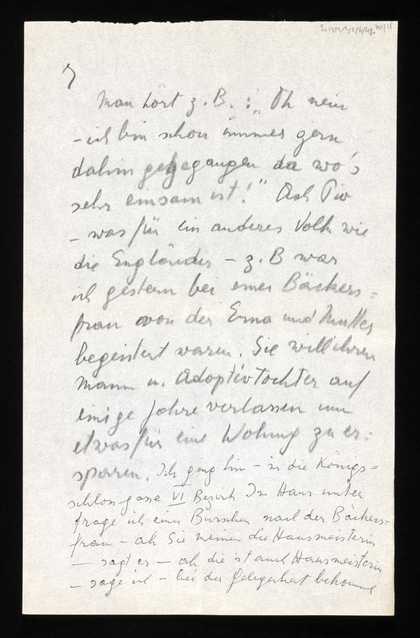 7
Man hört z. B. : "Oh nein
- ich bin schon immer gern
dahin gegangen da wo's
sehr einsam ist!" Ach Piv
- was für ein anderes Volk wie
die Engländer - z. B war
ich gestern bei einer Bäckers=
frau von der Erna und Mutter
begeistert waren. Sie will ihren
Mann u. Adoptivtochter auf
einige Jahre verlassen um
etwas für eine Wohnung zu er=
sparen. Ich ging hin - in die Königs=
schlossgasse VI Bezirk Im Haus unten
frage ich einen Burschen nach der Bäckers=
frau - ah Sie meinen die Hausmeisterin
- sagt er - ah die ist auch Hausmeisterin
- sage ich - bei der Gelegenheit